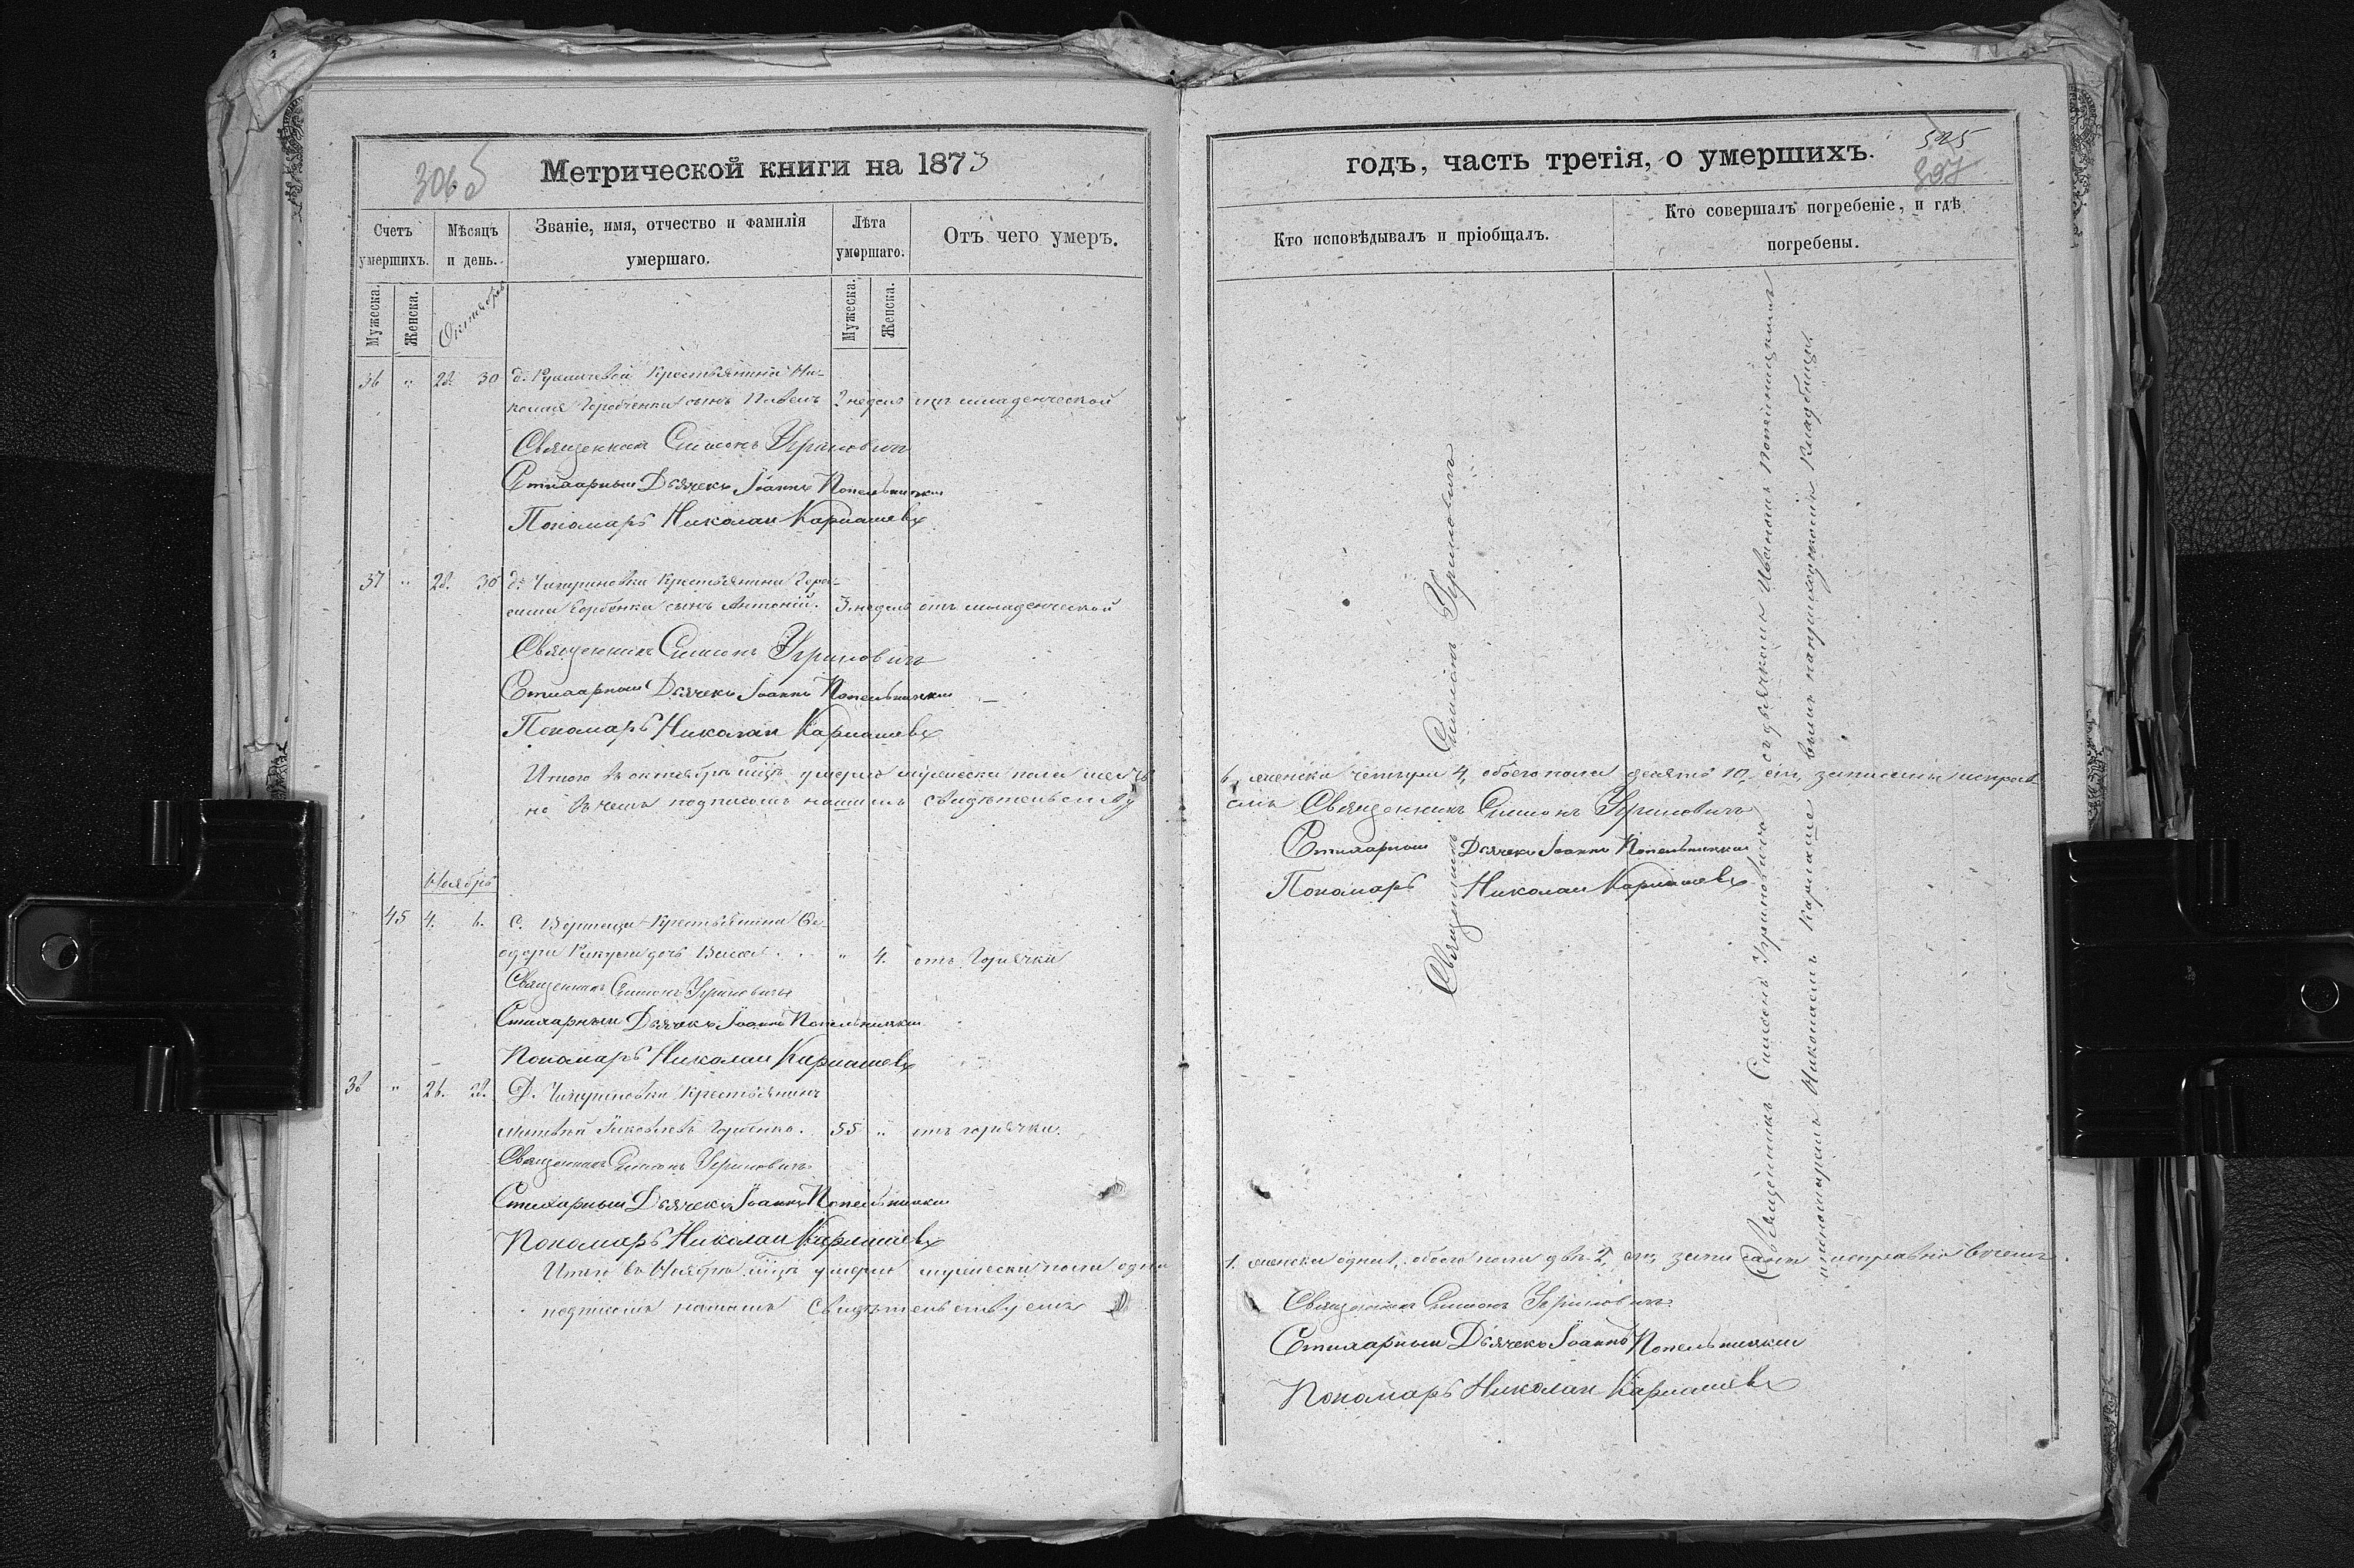 306 б
Метрической книги на 1873
Счетъ умершихъ.
Мѣсяцъ и день.
Званіе, имя, отчество и фамилія умершаго.
Лѣта умершаго.
Отъ чего умеръ.
Мужеска.
Женска.
Октябрь
Мужеска.
Женска.
36 " 28 30 крестьянина Ни-
сынъ Павелъ недель младенческой
Священникъ Симеонъ
Стихарный Дьячекъ Іоаннъ Попельницкій
Пономарь Николай Карпашевъ
37 " 28. 30 д. Чигириновки крестьянина Гера-
сима Горбенка сынъ Антоній. 3 недель отъ младенческой
Священникъ Симеонъ
Стихарный Дьячекъ Іоаннъ Попельницкій
Пономарь Николай Карпашевъ
Итого въ октябрѣ м-цѣ умерло мужеска пола шесть
но въ чемъ подписомъ нашимъ свидѣтельству
Ноябрь
45 4. 6. с. крестьянина Ѳе-
одора дочь " 4. отъ горячки
Священникъ Симеонъ
Стихарный Дьячекъ Іоаннъ Попельницкій
Пономарь Николай Карпашевъ
38 " 26. 28. Д. Чигириновки крестьянинъ
Яковлевъ Горбенко. 55 " отъ горячки.
Священникъ Симеонъ
Стихарный Дьячекъ Іоаннъ Попельницкій
Пономарь Николай Карпашевъ
Итого въ Ноябрѣ м-цѣ умерло мужеска пола одинъ
подписомъ нашимъ свидѣтельствуемъ
525
307
годъ, часть третія, о умершихъ.
Кто исповѣдывалъ и пріобщалъ.
Кто совершалъ погребеніе, и гдѣ погребены.
Священникъ Симеонъ
Священникъ Симеонъ съ дьячкомъ Іваномъ Попельницкимъ
и пономаремъ Николаемъ на приходскомъ кладбищѣ.
6, женска четыре 4, обоего пола десять 10, записаны исправ-
емъ Священникъ Симеонъ
Стихарный Дьячекъ Іоаннъ Попельницкій
Пономарь Николай Карпашевъ
1. женска одна 1, обоего пола двѣ 2, записаны исправно въ чемъ
Священникъ Симеонъ
Стихарный Дьячекъ Іоаннъ Попельницкій
Пономарь Николай Карпашевъ